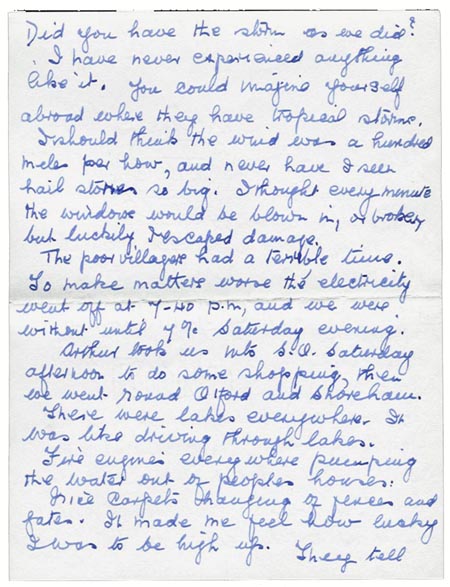 Did you have the storm as we did?
I have never experienced anything
like it. You could imagine yourself
abroad where they have tropical storms.
I should think the wind was a hundred
miles per hour, and never have I seen
hail stones so big. I thought every minute
the windows would be blown in, or broken
but luckily I escaped damage.
The poor villagers had a terrible time.
To make matters worse the electricity
went off at 7-40 p.m, and we were
without until 7 Saturday evening.
Arthur took us into S.O. Saturday
afternoon to do some shopping, then
we went round Otford and Shoreham.
There were lakes everywhere. It
was like driving through lakes.
Fire engines everywhere pumping
the water out of peoples houses.
Nice carpets hanging of fences and
gates. It made me feel how lucky
I was to be high up. They tell